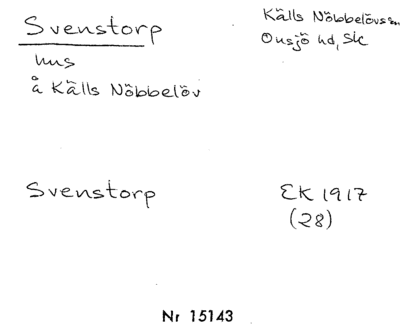 Svenstorp
Källs Nöbbelövs sn
Onsjö hd, Sk
hus
å Källs Nöbbelöv
Svenstorp
EK 1917
(28)
Nr 15143